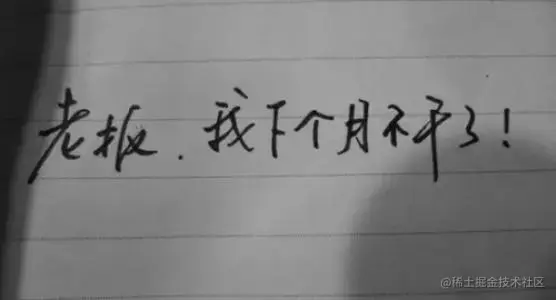 老板.我下个月不干了!
@稀土掘金技术社区